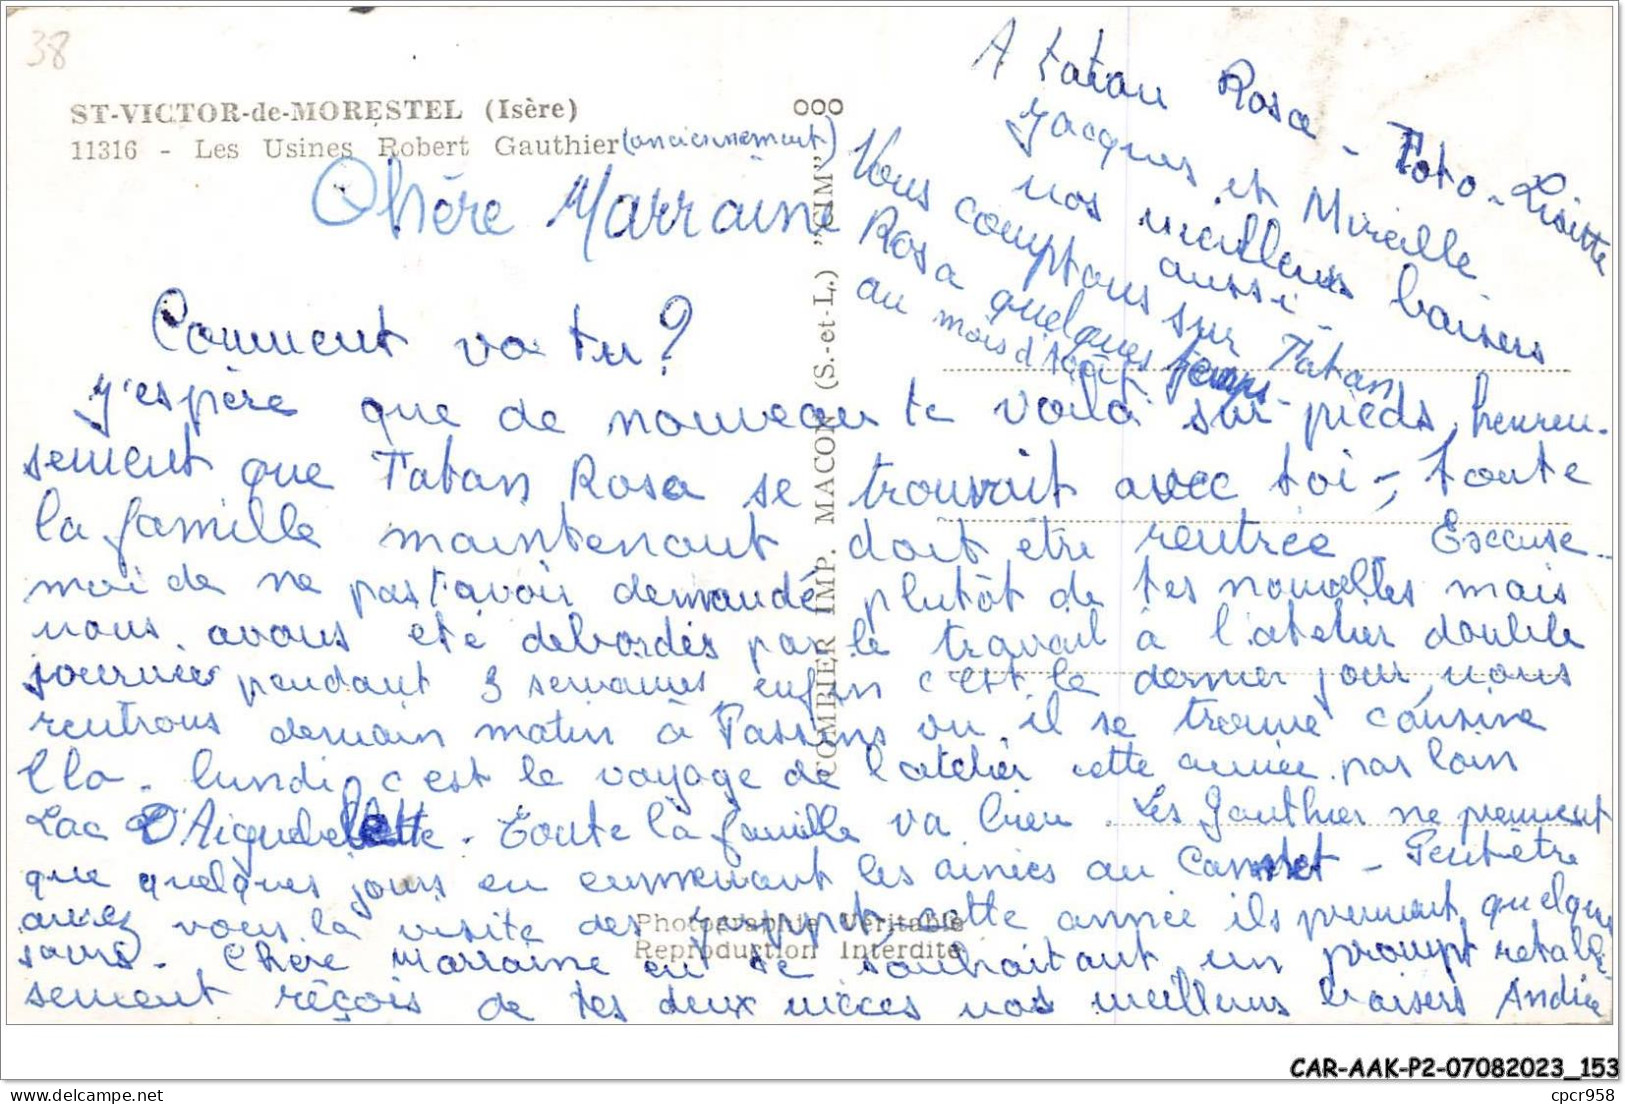 38
ST-VICTOR-de-MORESTEL (Isère)
11316 - Les Usines Robert Gauthier (anciennement)
Chère Marraine
Comment va tu ?
j'espère que de nouveau te voilà sur pieds, heureu-
sement que Tatan Rosa se trouvait avec toi -, toute
la famille maintenant doit être rentrée. Excuse-
moi de ne pas t'avoir demandé plutôt de tes nouvelles mais
nous avons été débordés par le travail à l'atelier double
journée pendant 3 semaines, enfin c'est le dernier jour, nous
rentrons demain matin à Passins ou il se trouve cousine
Lla. lundi c'est le voyage de l'atelier cette année par loin
Lac D'Aiguebelette. Toute la famille va bien. Les Gauthier ne prennent
que quelques jours en emmenant les ainées au Cannet - Peut-être
aurez vous la visite des cette année ils prennent quelques
jours. Chère Marraine en te souhaitant un prompt retablis-
sement reçois de tes deux nièces nos meilleurs baisers Andrée
A tatan Rosa - Toto - Lisette
Jacques et Mireille
nos meilleurs baisers
aussi -
Nous comptons sur Tatan
Rosa quelques temps
au mois d'Août
COMBIER IMP. MACON (S.-et-L.) "CIM"
Photographie Véritable
Reproduction Interdite
CAR-AAK-P2-07082023_153
https://www.delcampe.net
cpcr958